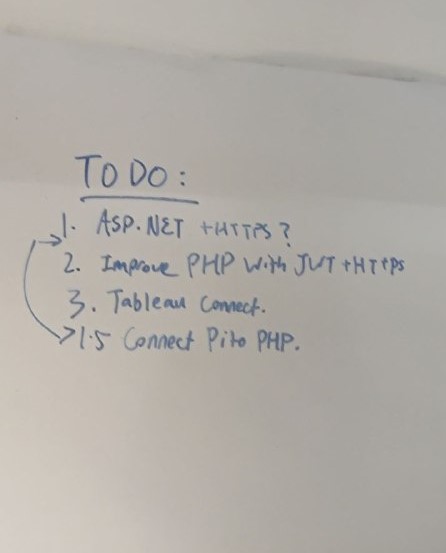 TO DO:
1. ASP.NET + HTTPS?
2. Improve PHP with JWT + HTTPS
3. Tableau Connect.
1.5 Connect Pi to PHP.